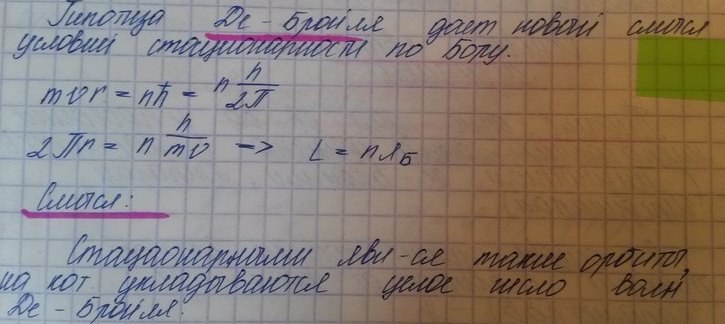 Гипотиза Де-Бройля дает новый смысл
условий стационарности по Бору.
mvr = nħ = n h/2П
2Пr = n h/mv -> L = nλБ
Смысл:
Стационарными явл-ся такие орбиты,
на кот. укладываются целое число волн
Де-Бройля.